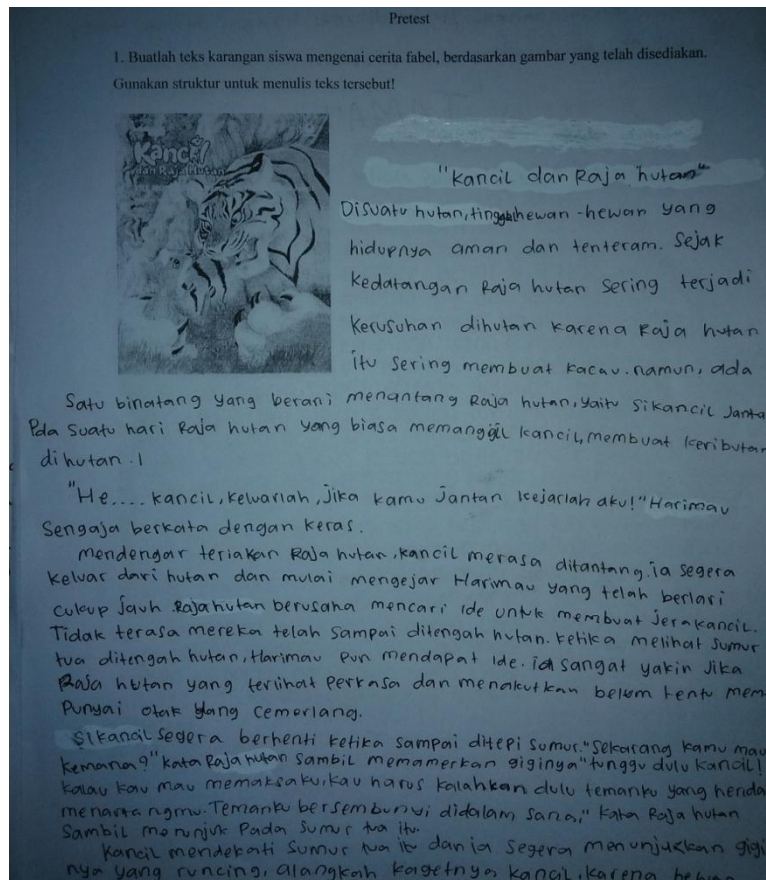 Pretest
1. Buatlah teks karangan siswa mengenai cerita fabel, berdasarkan gambar yang telah disediakan.
Gunakan struktur untuk menulis teks tersebut!
Kancil
dan Raja Hutan
"Kancil dan Raja hutan"
Disuatu hutan, tinggalhewan-hewan yang
hidupnya aman dan tenteram. Sejak
Kedatangan Raja hutan Sering terjadi
Kerusuhan dihutan Karena Raja hutan
itu Sering membuat kacau. namun, ada
Satu binatang yang berani menantang Raja hutan, yaitu Sikancil Janta
Pda Suatu hari Raja hutan yang biasa memanggil kancil, membuat keributan
di hutan.
"He.... kancil, Keluarlah, Jika kamu Jantan kejarlah aku!" Harimau
Sengaja berkata dengan keras.
mendengar teriakan Raja hutan, kancil merasa ditantang. ia segera
keluar dari hutan dan mulai mengejar Harimau yang telah berlari
cukup Jauh. Raja hutan berusaha mencari ide untuk membuat Jera kancil.
Tidak terasa mereka telah Sampai ditengah hutan. Ketika melihat Sumur
tua ditengah hutan, Harimau pun mendapat ide. ia sangat yakin Jika
Raja hutan yang terlihat Perkasa dan menakutkan belum tentu mem
Punyai otak yang cemerlang.
Sikancil Segera berhenti ketika sampai ditepi sumur. "Sekarang kamu mau
Kemana?" kata Raja hutan Sambil memamerkan giginya "tunggu dulu kancil!
kalau kau mau memaksaku, kau harus kalahkan dulu temanku yang henda
Temanku bersembunyi didalam Sana," kata Raja hutan
Sambil menunjuk Pada Sumur tua itu.
Kancil mendekati Sumur tua itu dan ia Segera menunjukkan gigi
nya yang runcing, alangkah kagetnya kancil, karena